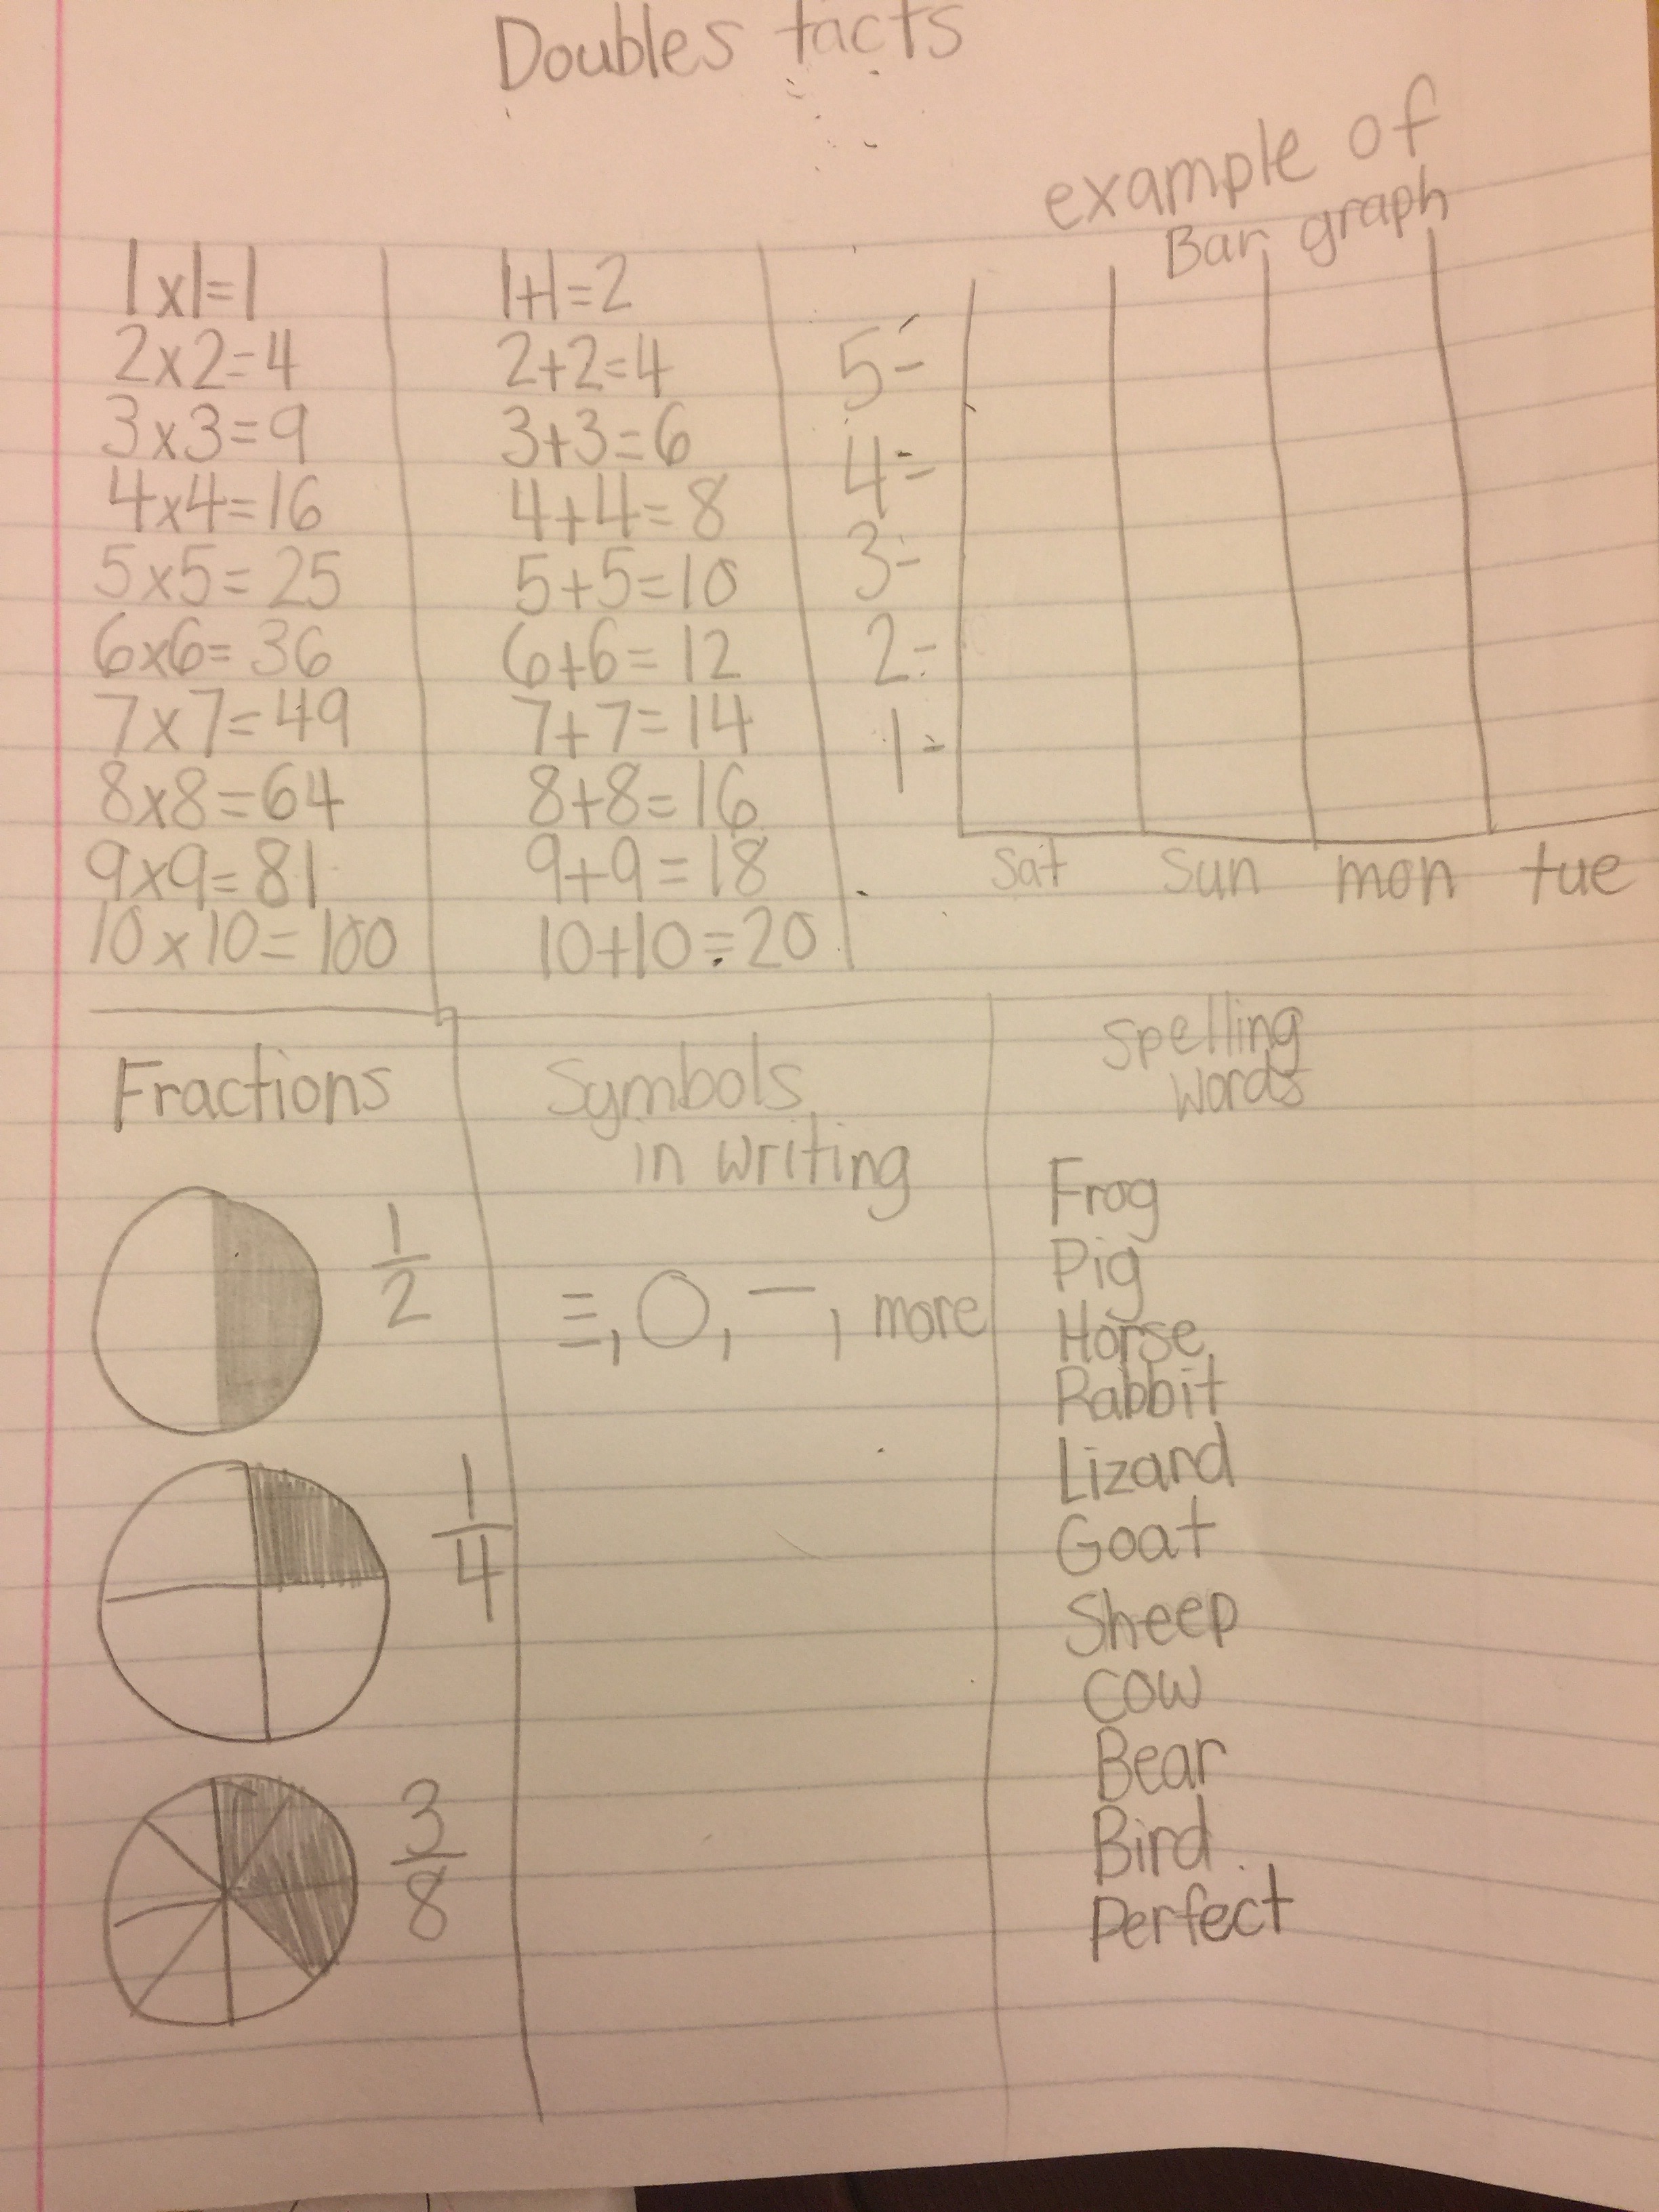 Doubles facts
1x1=1
2x2=4
3x3=9
4x4=16
5x5=25
6x6=36
7x7=49
8x8=64
9x9=81
10x10=100
1+1=2
2+2=4
3+3=6
4+4=8
5+5=10
6+6=12
7+7=14
8+8=16
9+9=18
10+10=20
example of
Bar graph
5-
4-
3-
2-
1-
sat sun mon tue
Fractions
1/2
1/4
3/8
Symbols
in writing
≡, O, —, more
Spelling
words
Frog
Pig
Horse
Rabbit
Lizard
Goat
Sheep
cow
Bear
Bird
Perfect